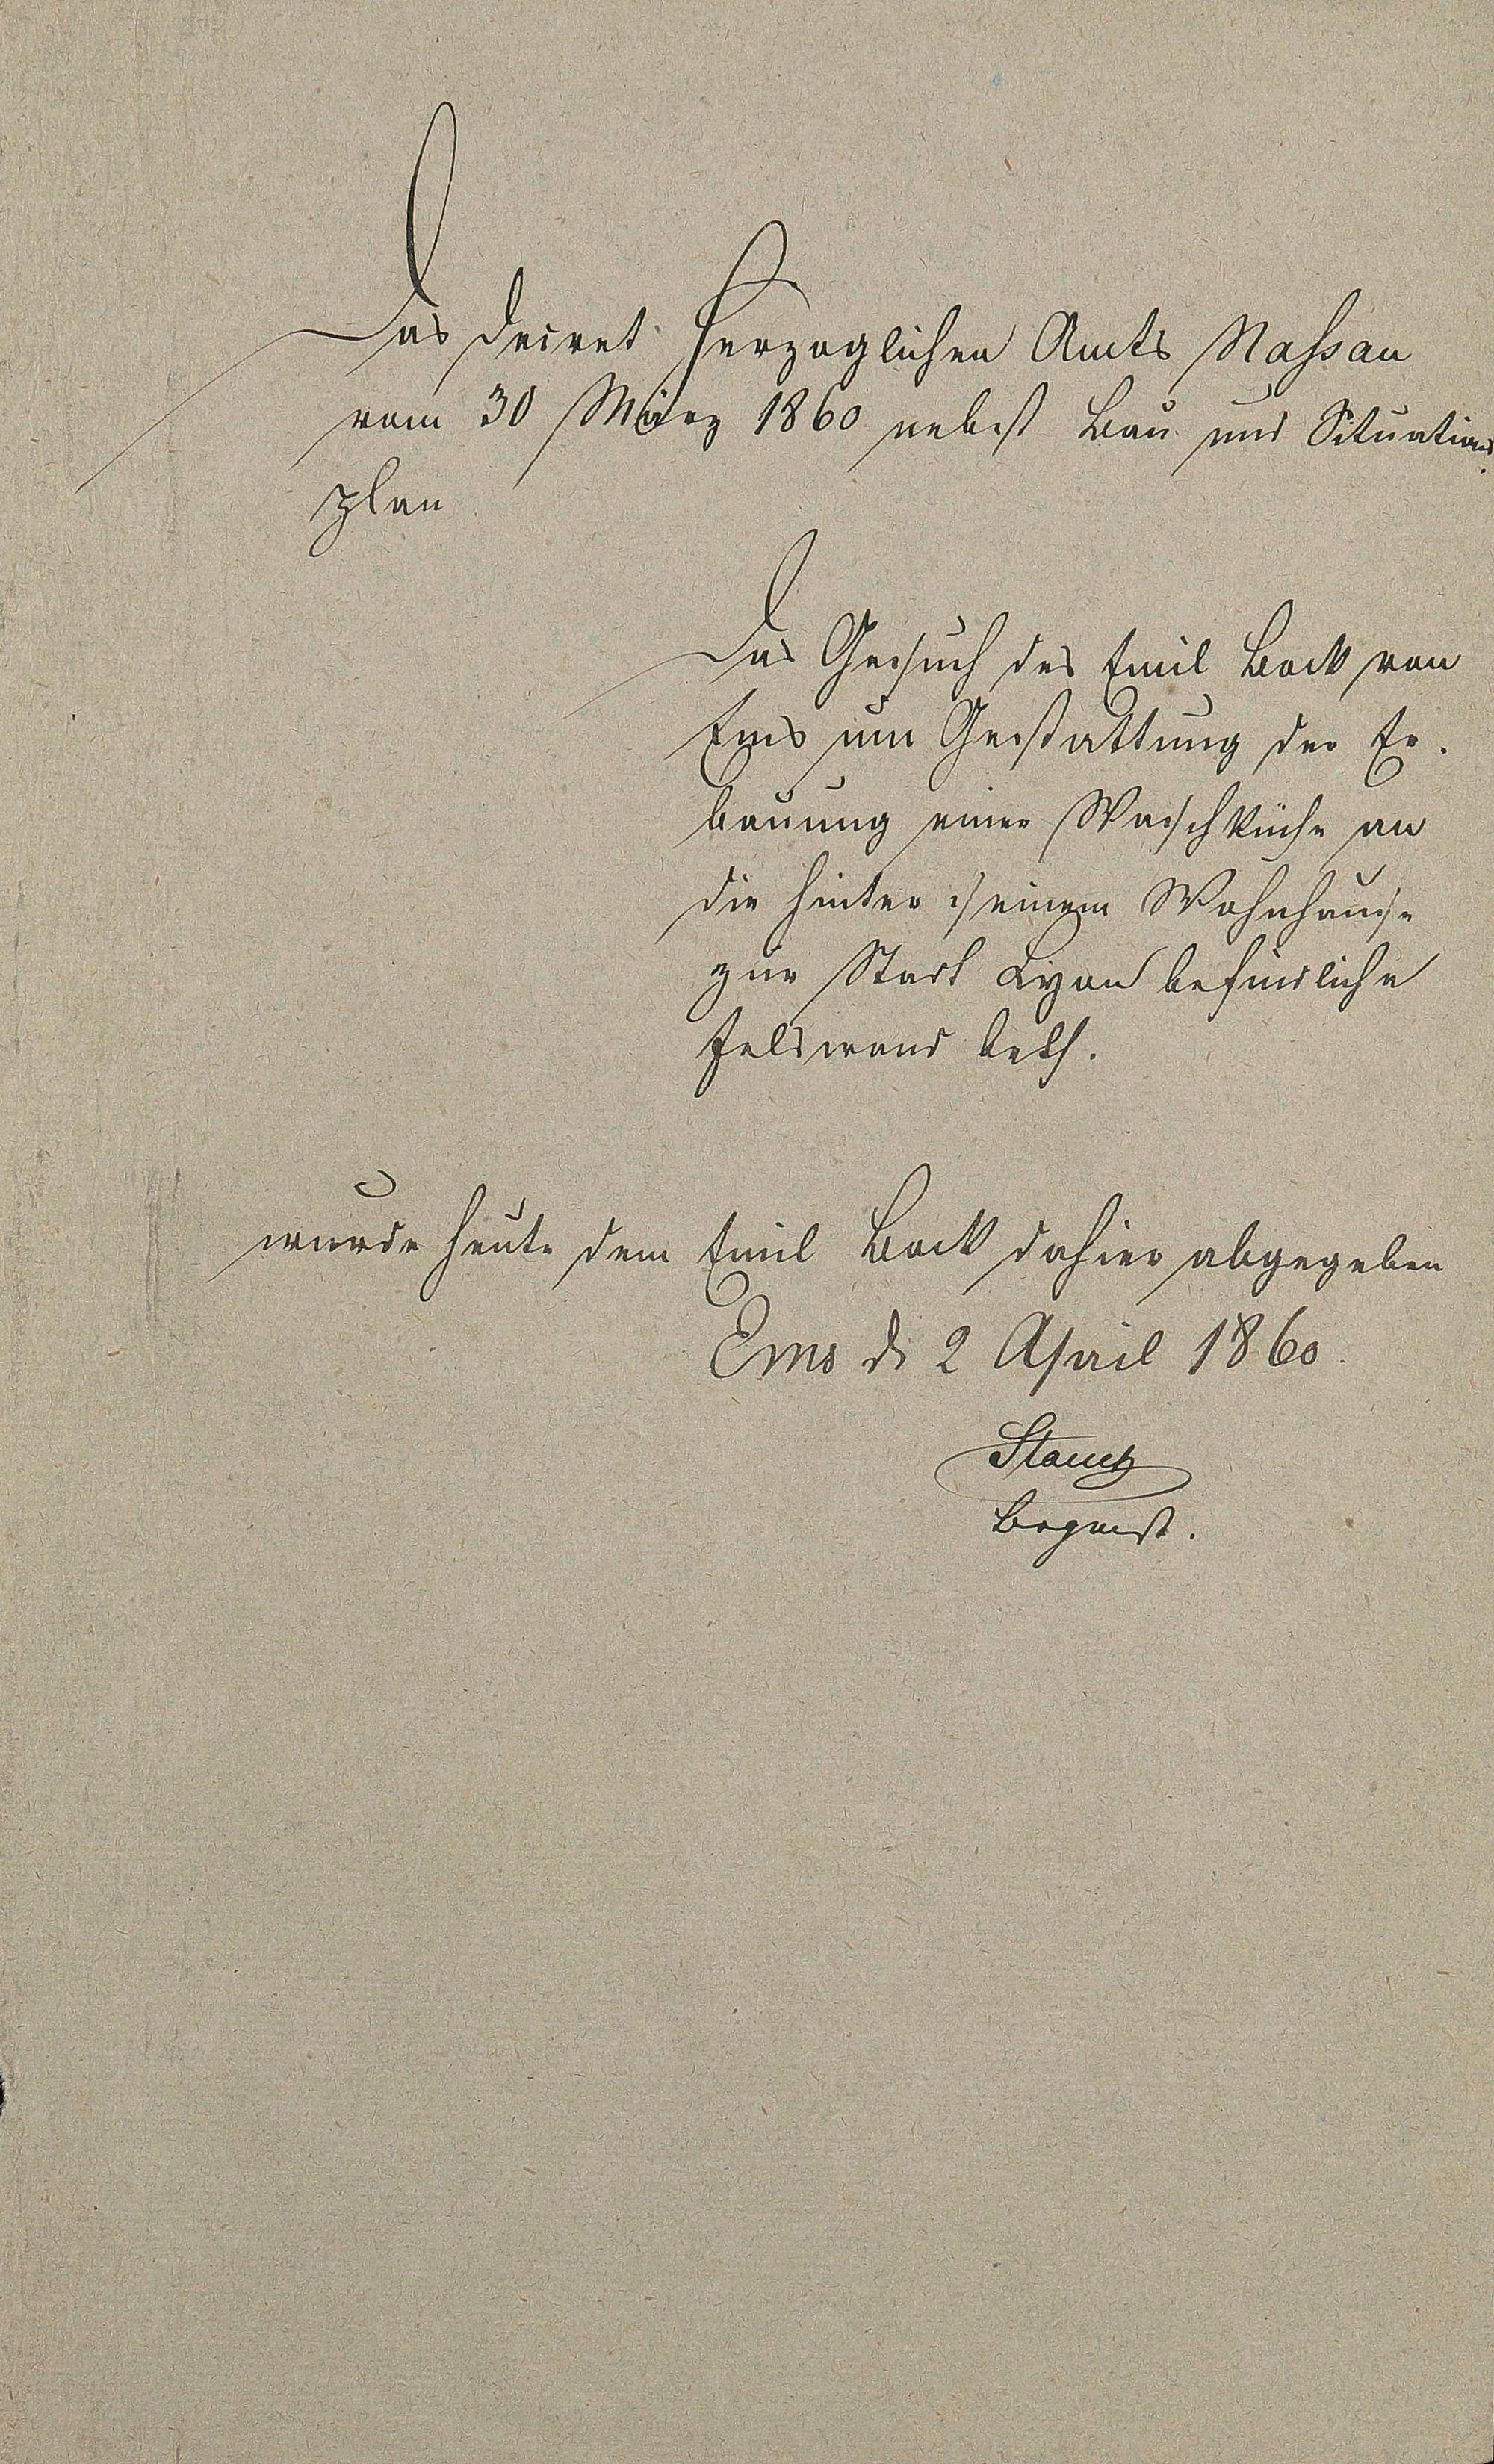 Das Decret Herzoglichen Amts Nassau
vom 30 März 1860 nebst Bau und Situations
plan
Das Gesuch des Emil Bock von
Ems um Gestattung der Er.
bauung einer Waschküche an
die hinter seinem Wohnhause
zur Stadt Lyon befindliche
Felswand betf.
wurde heute dem Emil Bock dahier abgegeben
Ems d 2 April 1860.
Bürgmst.